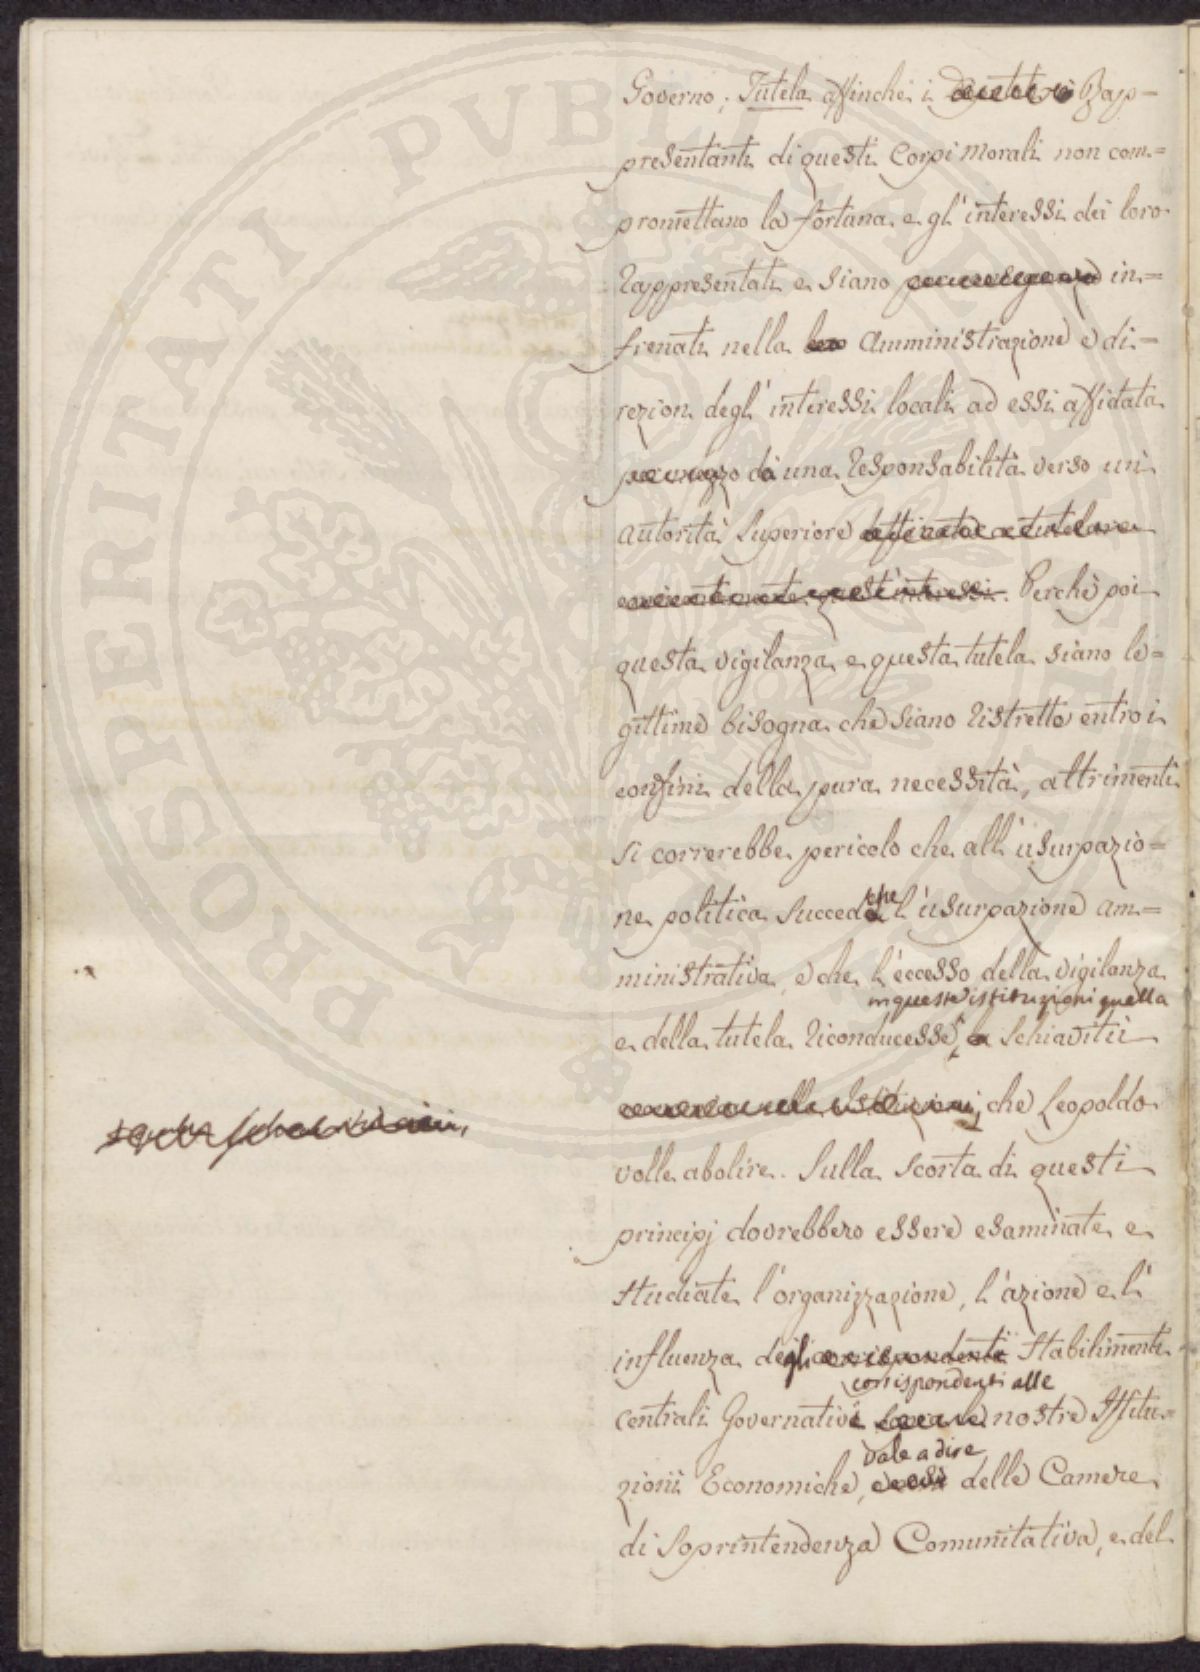 Governo; Tutela affinchè i Rap-
presentanti di questi Corpi Morali non com=
promettano la fortuna e gl'interessi dei loro
Rappresentati e siano in=
frenati nella loro Amministrazione e di=
rezione degl'interessi locali ad essi affidata
da una Responsabilità verso un
autorità Superiore
quest'interessi. Perchè poi
questa vigilanza e questa tutela siano le=
gittime bisogna che siano ristrette entro i
confini della pura necessità, altrimenti
si correrebbe pericolo che all'usurpazio=
ne politica succedesse l'usurpazione am=
ministrativa, e che l'eccesso della vigilanza
in queste istituzioni quella
e della tutela riconducesse, la Schiavitù
che Leopoldo
volle abolire. Sulla scorta di questi
principj dovrebbero essere esaminate e
studiate l'organizzazione, l'azione e l'
influenza degli corrispondenti Stabilimenti
corrispondenti alle
Centrali Governativi nostre Istitu=
vale a dire
zioni Economiche, delle Camere
di Soprintendenza Comunitativa, e del
PROSPERITATI PVBLICAE